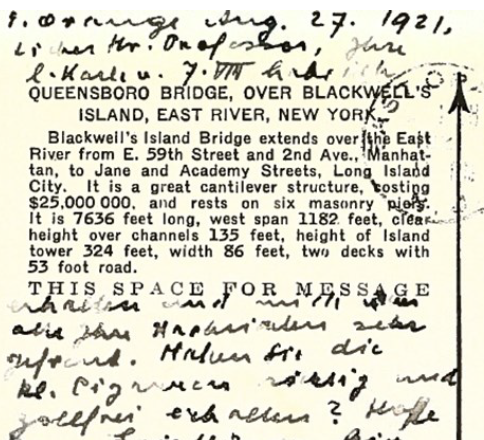 E. Orange Aug. 27. 1921.
Lieber Hr. Professor, Ihre
l. Karte v. 7. VIII habe ich
QUEENSBORO BRIDGE, OVER BLACKWELL'S
ISLAND, EAST RIVER, NEW YORK.
Blackwell's Island Bridge extends over the East
River from E. 59th Street and 2nd Ave., Manhat-
tan, to Jane and Academy Streets, Long Island
City. It is a great cantilever structure, costing
$25,000 000, and rests on six masonry piers.
It is 7636 feet long, west span 1182 feet, clear
height over channels 135 feet, height of Island
tower 324 feet, width 86 feet, two decks with
53 foot road.
THIS SPACE FOR MESSAGE
erhalten und mich über
alle Ihre Nachrichten sehr
gefreut. Haben Sie die
kl. Cigarren richtig und
zollfrei erhalten? Hoffe